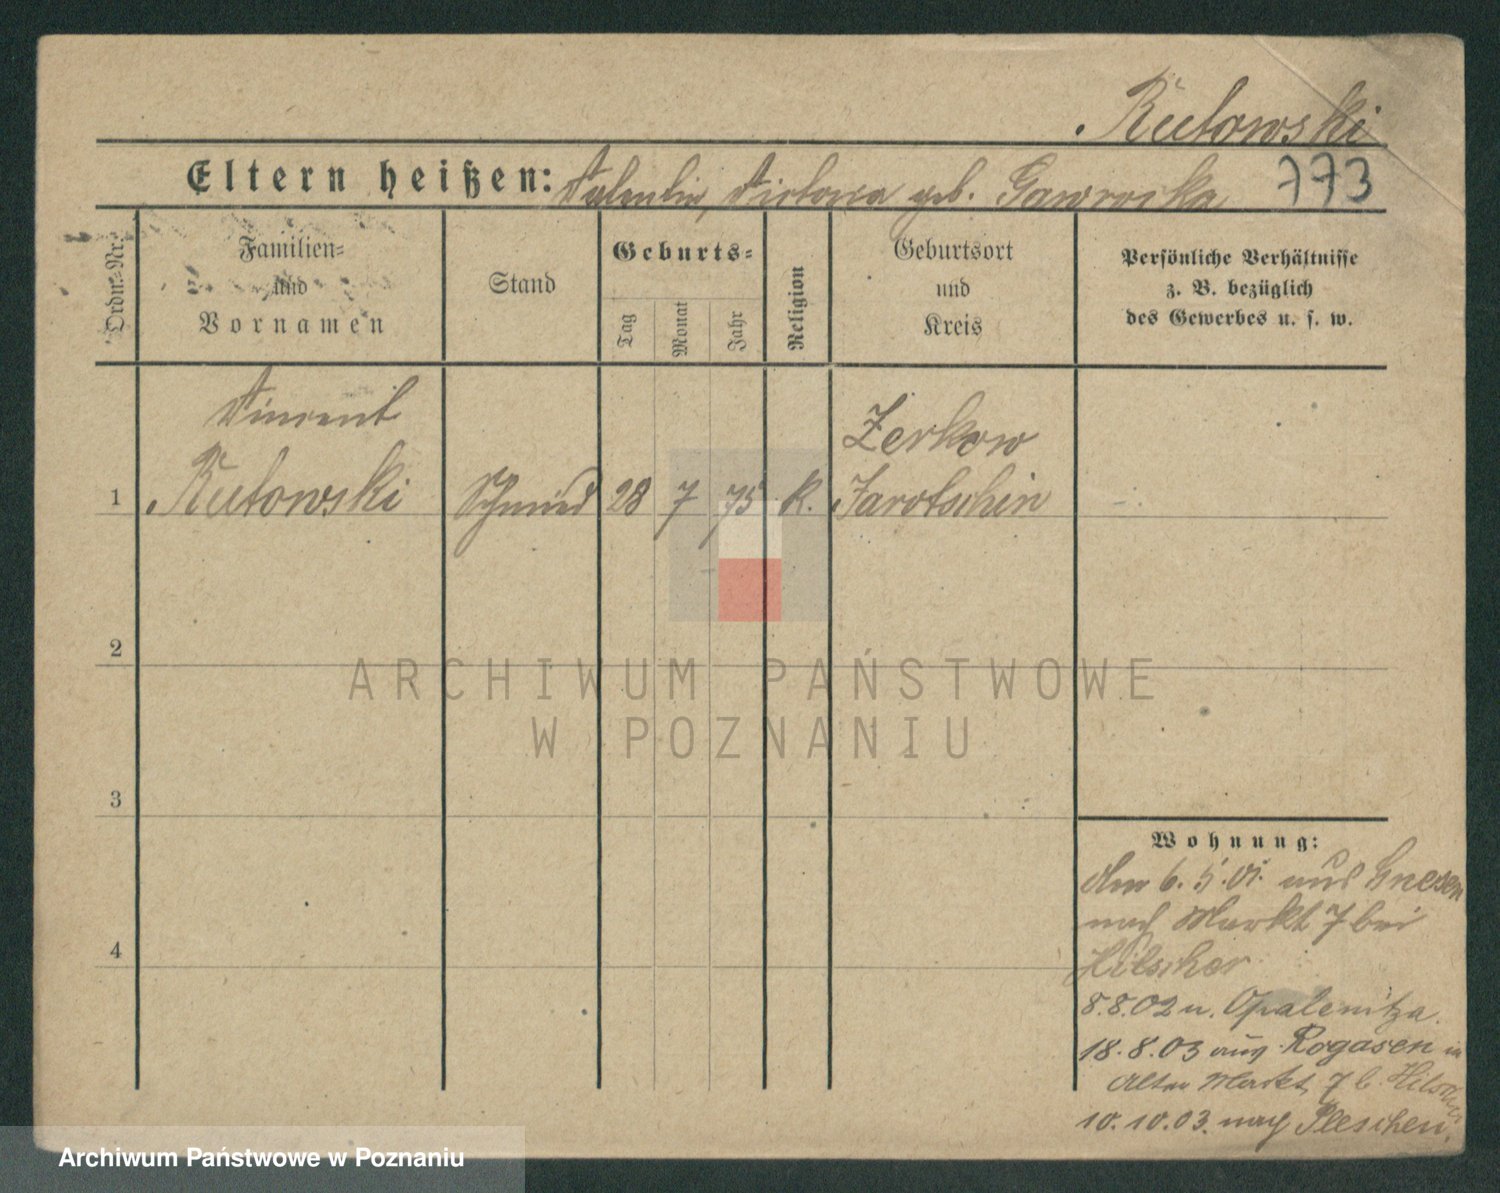 Rutowski
Eltern heißen: Valentin, Victoria geb. Gawroska 773
Ordn.-Nr.
Familien-
und
Vornamen
Stand
Geburts-
Tag
Monat
Jahr
Religion
Geburtsort
und
Kreis
Persönliche Verhältnisse
z. B. bezüglich
des Gewerbes u. s. w.
Vincent
Zerkow
1 Rutowski Schmied 28 7 75 k. Jarotschin
2
3
4
Wohnung:
Am 6. 5. 01. aus Gnesen
nach Markt 7 bei
Hilscher
8.8.02 n. Opalenitza.
18.8.03 aus Rogasen in
Alter Markt 7 b.
10.10.03. nach Pleschen.
ARCHIWUM PAŃSTWOWE
W POZNANIU
Archiwum Państwowe w Poznaniu